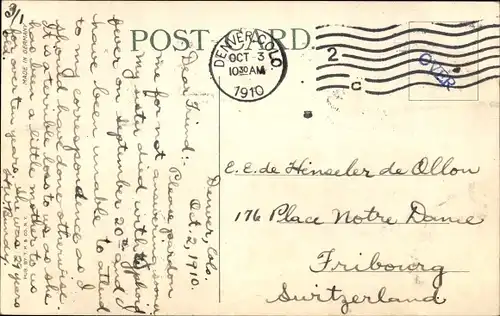 POST CARD.
DENVER, COLO.
OCT 3
10 30 AM
1910
2
C
OVER
Denver, Colo.
Oct. 2, 1910.
Dear Friend:-
Please pardon
me for not answering sooner
my sister died with typhoid
fever on September 20th and I
have been unable to attend
to my correspondence as I
should have done otherwise.
It is a terrible loss to us as she
has been a little mother to us
for over ten years, she was 29 years
old.
3/1
MADE IN GERMANY
E. E. de Hinseler de Ollon
176 Place Notre Dame
Fribourg
Switzerland